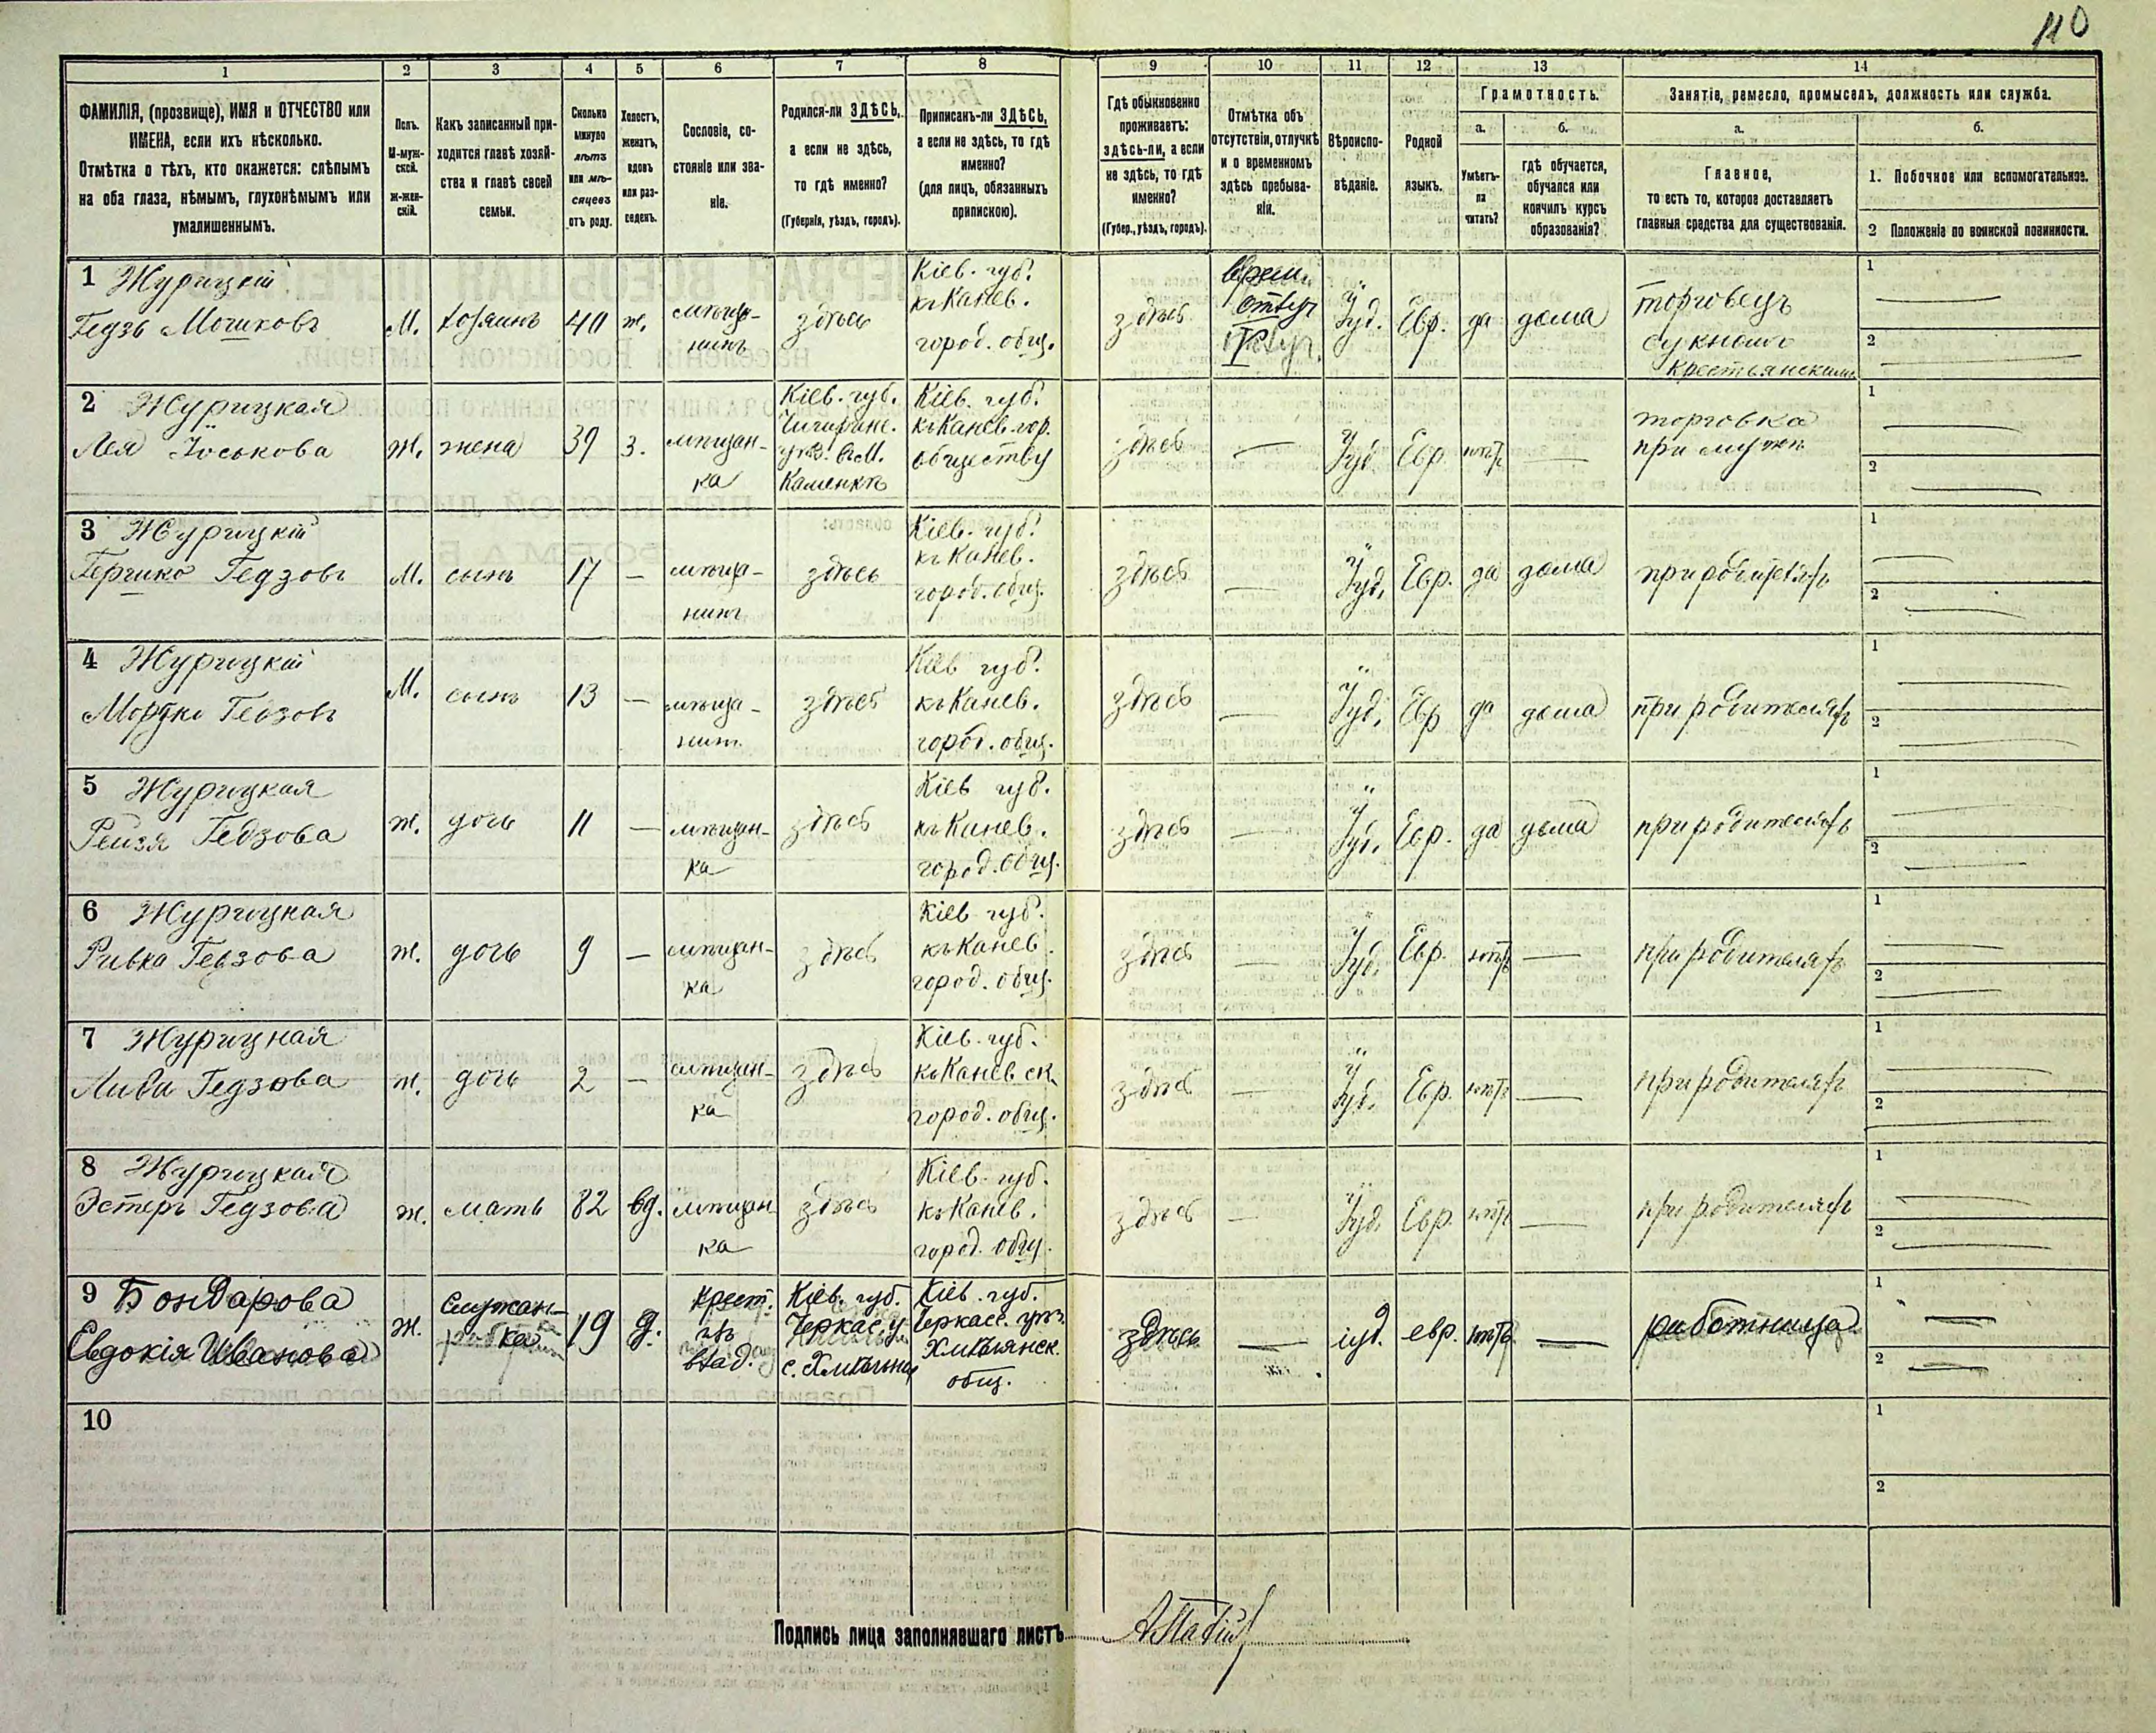 110
1 2 3 4 5 6 7 8 9 10 11 12 13 14
ФАМИЛІЯ, (прозвище), ИМЯ и ОТЧЕСТВО или
ИМЕНА, если ихъ нѣсколько.
Отмѣтка о тѣхъ, кто окажется: слѣпымъ
на оба глаза, нѣмымъ, глухонѣмымъ или
умалишеннымъ.
Полъ.
М-муж-
ской.
Ж-жен-
скій.
Какъ записанный при-
ходится главѣ хозяй-
ства и главѣ своей
семьи.
Сколько
минуло
лѣтъ
или мѣ-
сяцевъ
отъ роду.
Холостъ,
женатъ,
вдовъ
или раз-
веденъ.
Сословіе, со-
стояніе или зва-
ніе.
Родился-ли ЗДѢСЬ,
а если не здѣсь,
то гдѣ именно?
(Губернія, уѣздъ, городъ).
Приписанъ-ли ЗДѢСЬ,
а если не здѣсь, то гдѣ
именно?
(для лицъ, обязанныхъ
припискою).
Гдѣ обыкновенно
проживаетъ:
здѣсь-ли, а если
не здѣсь, то гдѣ
именно?
(Губер., уѣздъ, городъ).
Отмѣтка объ
отсутствіи, отлучкѣ
и о временномъ
здѣсь пребыва-
ніи.
Вѣроиспо-
вѣданіе.
Родной
языкъ.
Грамотность.
а.
Умѣетъ-
ли
читать?
б.
гдѣ обучается,
обучался или
кончилъ курсъ
образованія?
Занятіе, ремесло, промыселъ, должность или служба.
а.
Главное,
то есть то, которое доставляетъ
главныя средства для существованія.
б.
1. Побочное или вспомогательное.
2 Положеніе по воинской повинности.
1 Журицкій
Гедзь Мошковъ
М.
хозяинъ
40
ж.
мѣща-
нинъ
здѣсь
Кіев. губ.
къ Канев.
город. общ.
здѣсь
врем.
отлуч
Іуд.
Евр.
да
дома
торговецъ
сукномъ
крестьянскимъ
1
2
2 Журицкая
Лея Іоськова
Ж.
жена
39
з.
мѣщан-
ка
Кіев. губ.
Чигирин.
уѣз. в м.
Каменкѣ
Кіев. губ.
къ Канев. гор.
обществу
здѣсь
—
Іуд.
Евр.
нѣтъ
—
торговка
при мужѣ
1
2
3 Журицкій
Гершко Гедзовъ
М.
сынъ
17
—
мѣща-
нинъ
здѣсь
Кіев. губ.
къ Канев.
город. общ.
здѣсь
—
Іуд.
Евр.
да
дома
при родителяхъ
1
2
4 Журицкій
Мордко Гедзовъ
М.
сынъ
13
—
мѣща-
нинъ
здѣсь
Кіев губ.
къ Канев.
город. общ.
здѣсь
—
Іуд.
Евр
да
дома
при родителяхъ
1
2
5 Журицкая
Рейзя Гедзова
ж.
дочь
11
—
мѣщан-
ка
здѣсь
Кіев губ.
къ Канев.
город. общ.
здѣсь
—
Іуд.
Евр.
да
дома
при родителяхъ
1
2
6 Журицкая
Ривка Гедзова
ж.
дочь
9
—
мѣщан-
ка
здѣсь
Кіев губ.
къ Канев
город. общ.
здѣсь
—
Іуд.
Евр.
нѣтъ
—
при родителяхъ
1
2
7 Журицкая
Гедзова
ж.
дочь
2
—
мѣщан-
ка
здѣсь
Кіев. губ.
къ Каневск.
город. общ.
здѣсь
—
Іуд.
Евр.
нѣтъ
—
при родителяхъ
1
2
8 Журицкая
Эстеръ Гедзова
ж.
мать
82
вд.
мѣщан
ка
здѣсь
Кіев. губ.
къ Канев.
город. общ.
здѣсь
—
Іуд.
Евр.
нѣтъ
—
при родителяхъ
1
2
9 Бондарова
Евдокія Иванова
ж.
служан-
ка
19
д.
крест.
изъ
влад.
Кіев. губ.
Черкас. у.
Кіев. губ.
Черкасс. уѣз.
Хмѣлянск.
общ.
здѣсь
—
іуд.
евр.
нѣтъ
—
работница
1
2
10
1
2
Подпись лица заполнявшаго листъ